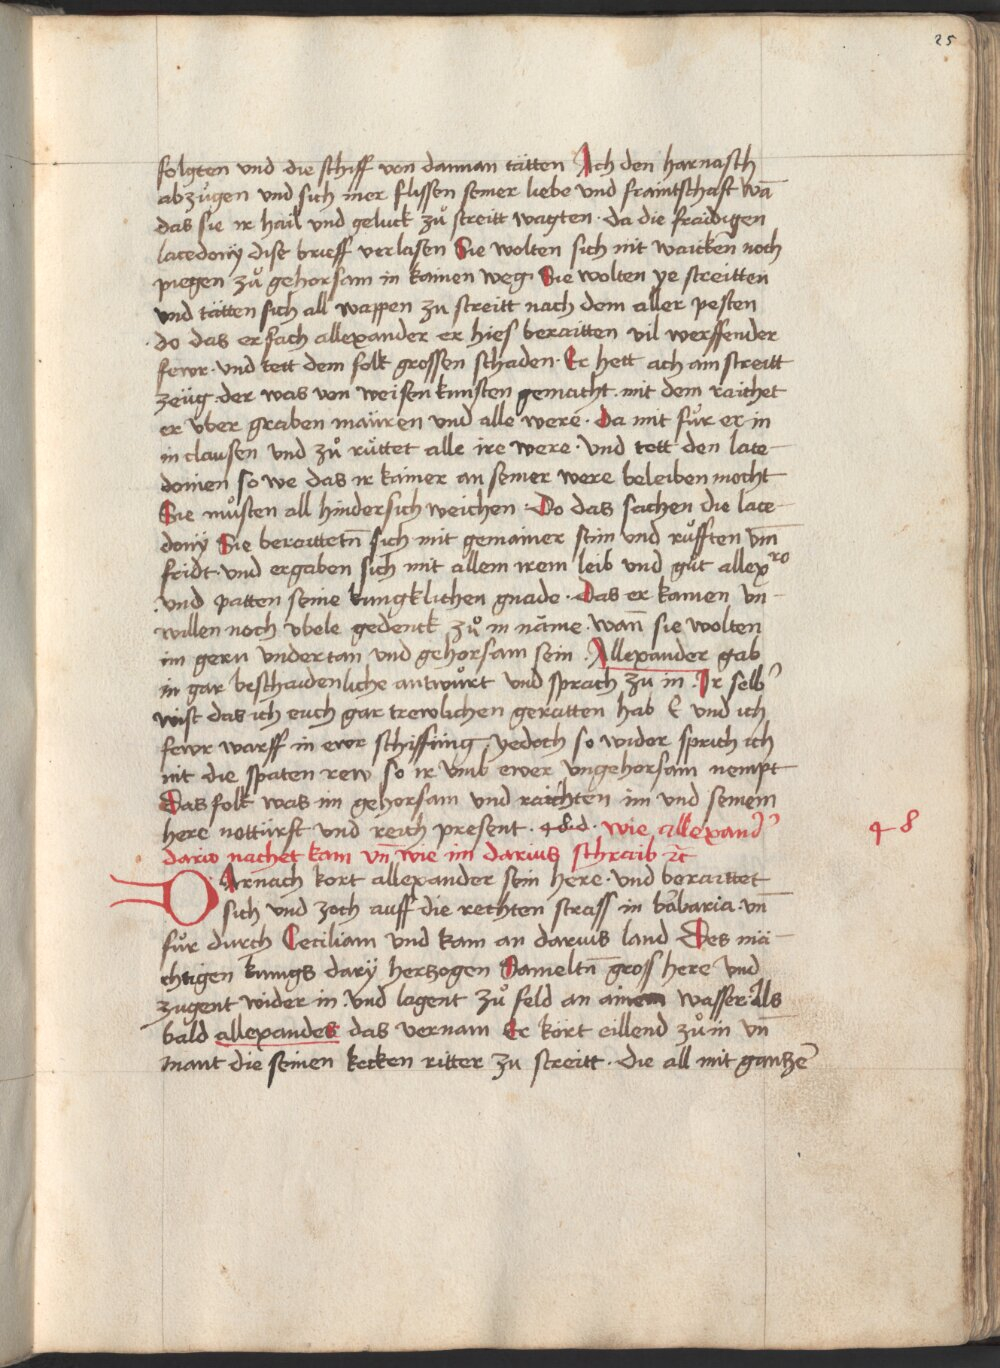 25
folgten vnd die schiff von dannan tätten Ach den harnasch
abzugen vnd sich mer flissen seiner liebe vnd fraintschaft wā
das sie ir hail vnd geluck zů streitt wagten · da die fraidigen
lacedonÿ dise brieff verlasen Sie wolten sich nit waicken noch
piegen zů gehorsam in kainen weg Sie wolten ye streitten
vnd tätten sich all wappen zu streitt nach dem aller pesten
do das ersach allexander er hies beraitten vil werffender
fewr · vnd tett dem folk grossen schaden · Er hett ach ain streitt
zeüg · der was von weisen kunsten gemacht · mit dem raichet
er vber graben mauren vnd alle were · Da mit fůr er in
in clausen vnd zů růttet alle ire were · vnd tett den lace-
donien so we das ir kainer an seiner were beleiben mocht
Sie můsten all hindersich weichen · Do das sachen die lace-
donÿ Sie beraittetn̄ sich mit gemainer stim vnd růfften vm̄
fridt · vnd ergaben sich mit allem irem leib vnd gůt allexro
vnd patten seine kungklichen gnade · Das er kainen vn-
willen noch vbele gedenck zů in näme · wan̄ sie wolten
im gern vndertan vnd gehorsam sein · Allexander gab
in gar beschaidenliche antwůrt vnd sprach zu in · Ir selb
wist das ich euch gar trewlichen geratten hab E vnd ich
fewr warff in ewr schiffung yedoch so wider sprich ich
nit die spaten rew so ir vmb ewer vngehorsam nempt
Das folk was im gehorsam vnd raichten im vnd seinem
here notturft vnd reich present · wie allexand
48
dario nachet kam vn̄ wie im darius schraib ꝛc
DArnach kort allexander sein here · vnd beraittet
sich vnd zoch auff die rechten strass in babaria · vn̄
fůr durch Ceciliam vnd kam an darius land Des mä-
chtigen kunigs darÿ herzogen Sameltn̄ gross here vnd
zugent wider in · vnd lagent zů feld an ainem wasser · Als
bald allexandes das vernam Er kört eillend zů in vn̄
mant die seinen kecken ritter zu streitt · die all mit gantzē